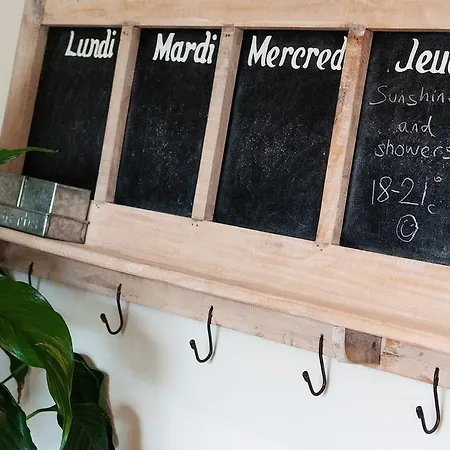 Lundi
Mardi
Mercred
Jeu
Sunshin
and
showers
18-21°C